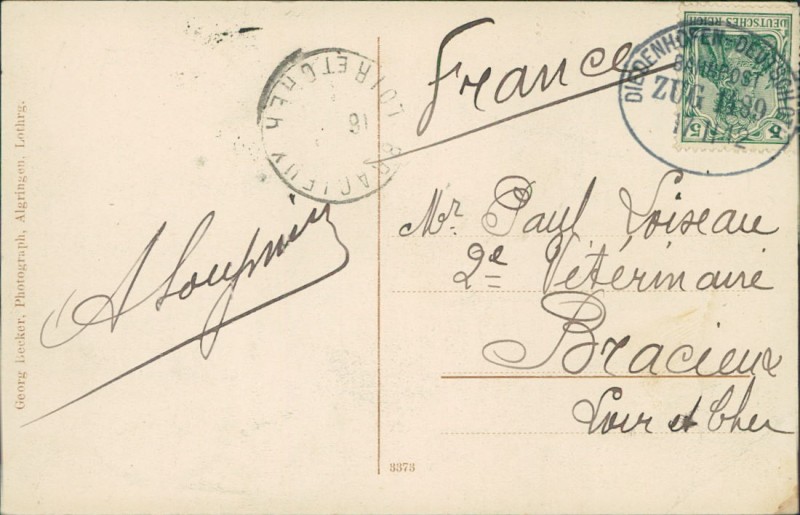 Georg Becker, Photograph, Algringen, Lothrg.
BRACIEUX
LOIR ET CHER
18
France
DEUTSCHES REICH
5 5
BAHNPOST
ZUG 1189
Mr. Paul Loiseau
2e Vétérinaire
Bracieux
Loir et Cher
3373